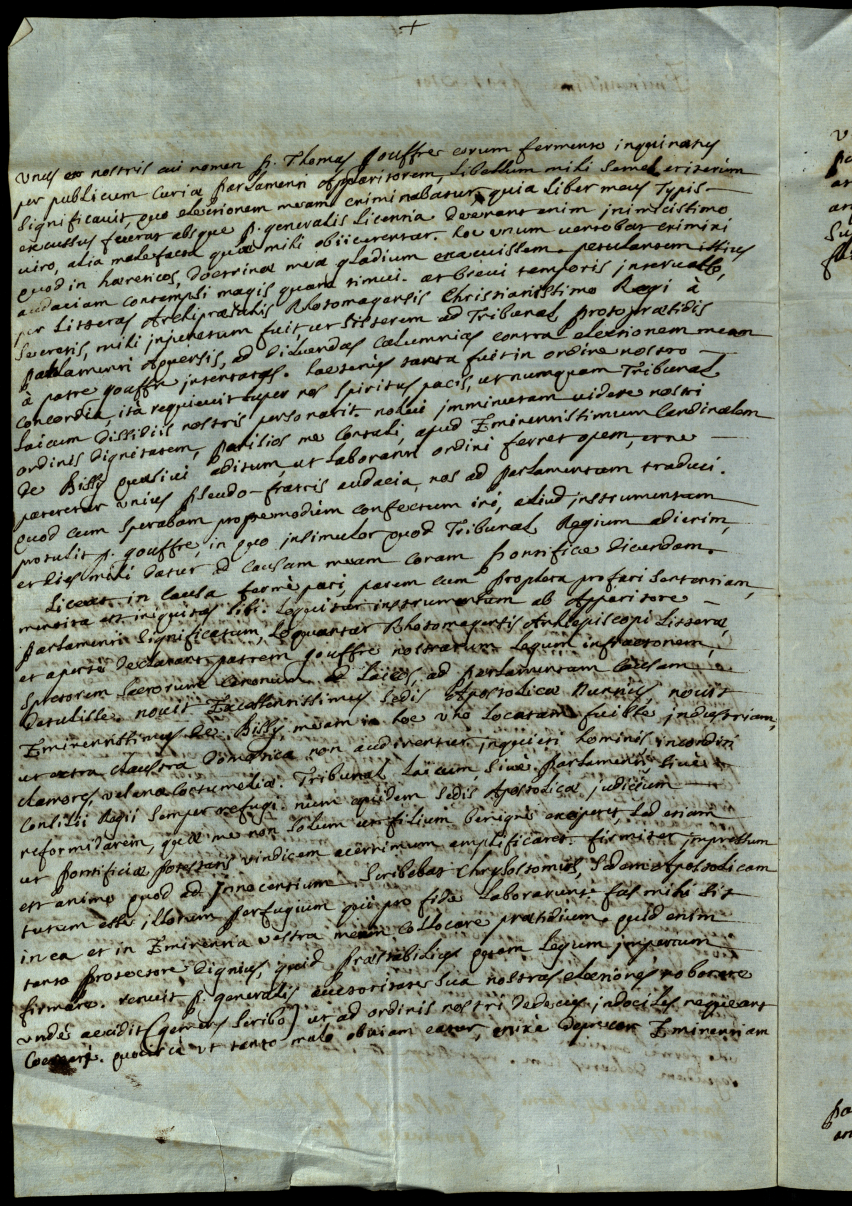 +
Unus ex nostris cui nomen P. Thomas Gouffre eorum fermento inquinatus
per publicum Curiæ Parlamenti Apparitorem, libellum mihi semel et iterum
significavit, quo electionem meam criminabatur, quia liber meus Typis
excussus fuerat absque P. generalis licentia deerant enim inimicissimo
viro, alia malefacta quæ mihi obiicerentur. hoc unum vertebat crimini
quod in hæreticos, doctrinæ meæ gladium exacuissem. petulantem istius
audaciam contempsi magis quam timui. at brevi temporis intervallo,
per litteras Archipræsulis Rhotomagensis Christianissimo Regi à
Secretis, mihi injunctum fuit, ut sisterem ad Tribunal protopræsidis
Parlamenti Aquensis, ad diluendas calumnias contra electionem meam
à patre gouffre intentatas. hactenus tanta fuit in ordine nostro
concordia, ità requievit super nos spiritus pacis, ut numquam Tribunal
laicum dissidiis nostris personarit. nolui imminutam videre nostri
ordinis dignitatem, me contuli, apud Eminentissimum Cardinalem
de Billy quæsivi aditum ut laboranti ordini ferret opem, et ne
pateretur unius pseudo-fratris audacia, nos ad parlamentum traduci.
quod cum sperabam propemodum confectum iri, aliud instrumentum
protulit P. gouffre, in quo insimulor quod Tribunal Regium adierim,
et dies mihi datur ad causam meam coram Pontifice dicendam.
Liceat in causa fermè pari, parem cum Propheta profari sententiam,
mentita est iniquitas sibi. loquitur instrumentum ab Apparitore
Parlamenti significatum, loquantur Rhotomagensis Archiepiscopi litteræ,
et apertè declarant patrem gouffre nostrarum legum infractorem,
spretorem sacrorum canonum ad laicos, ad parlamentum causam
detulisse. novit Excellentissimus sedis Apostolicæ Nuntius, novit
Eminentissimus de Billy, meam in hoc uno locatam fuisse industriam,
ut extra claustra domestica non audirentur inquieti hominis inconditi
clamores, vel contumeliæ. Tribunal laicum sivè Parlamenti, sivè
Consilii Regii semper refugi. num quidem sedis Apostolicæ judicium
reformidarem, quæ me non solum ut filium benignè exciperet, sed etiam
ut Pontificiæ potestatis vindicem acerrimum amplificaret. firmiter impressum
est animo quod ad Innocentium scribebat Chrysostomus, sedem Apostolicam
tutum esse illorum perfugium qui pro fide laborarunt. fas mihi sit
in ea et in Eminentia vestra meum collocare præsidium. quid enim
tanto Protectore dignius, quid præstabilius quam legum imperium
firmare. renuit P. generalis auctoritate sua nostras electiones roborare
undè accidit (gemens scribo) ut ad ordinis nostri dedecus, indociles nequeant
coerceri. quocircà ut tanto malo obviam eatur, enixè deprecor Eminentiam